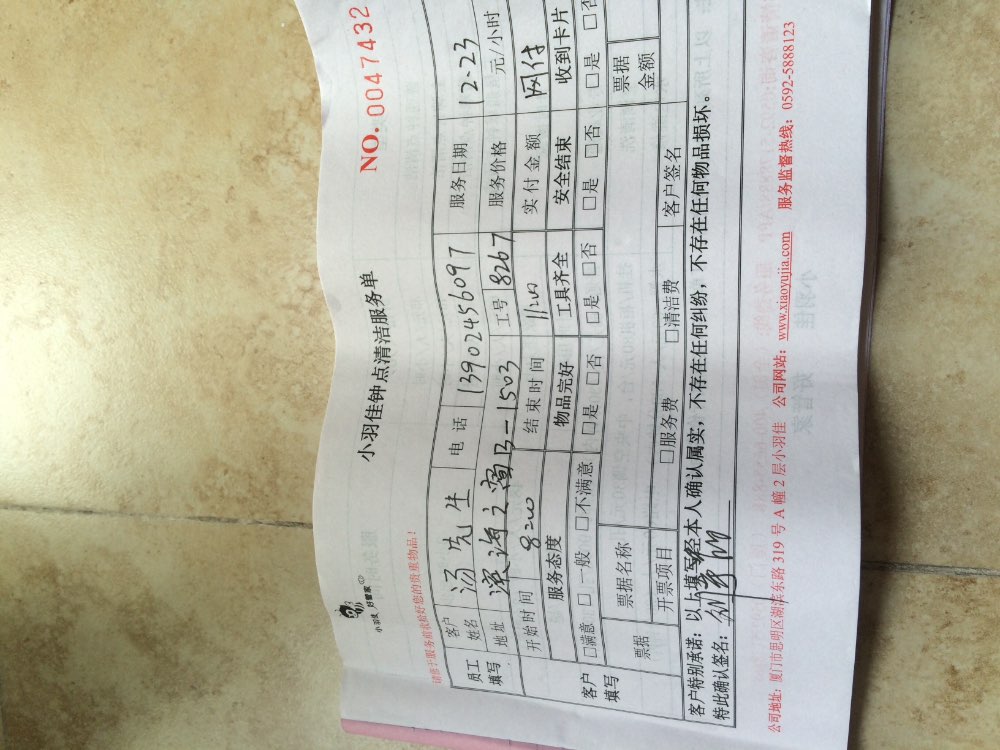 小羽佳 好管家
小羽佳钟点清洁服务单
NO. 0047432
请您于服务前收拾好您的贵重物品！
员工填写 客户姓名 汤先生 电话 13902456097 服务日期 12-23
地址 3-1503 工号 8267 服务价格 元/小时
开始时间 8:00 结束时间 11:00 实付金额 网付
客户填写 服务态度 物品完好 工具齐全 安全结束 收到卡片
□满意 □一般 □不满意 □是 □否 □是 □否 □是 □否 □是 □否
票据 票据名称 票据金额
开票项目 □服务费 □清洁费 客户签名
客户特别承诺：以上填写经本人确认属实，不存在任何纠纷，不存在任何物品损坏。
特此确认签名：
公司地址：厦门市思明区湖滨东路 319 号 A 幢 2 层小羽佳 公司网站：www.xiaoyujia.com 服务监督热线：0592-5888123